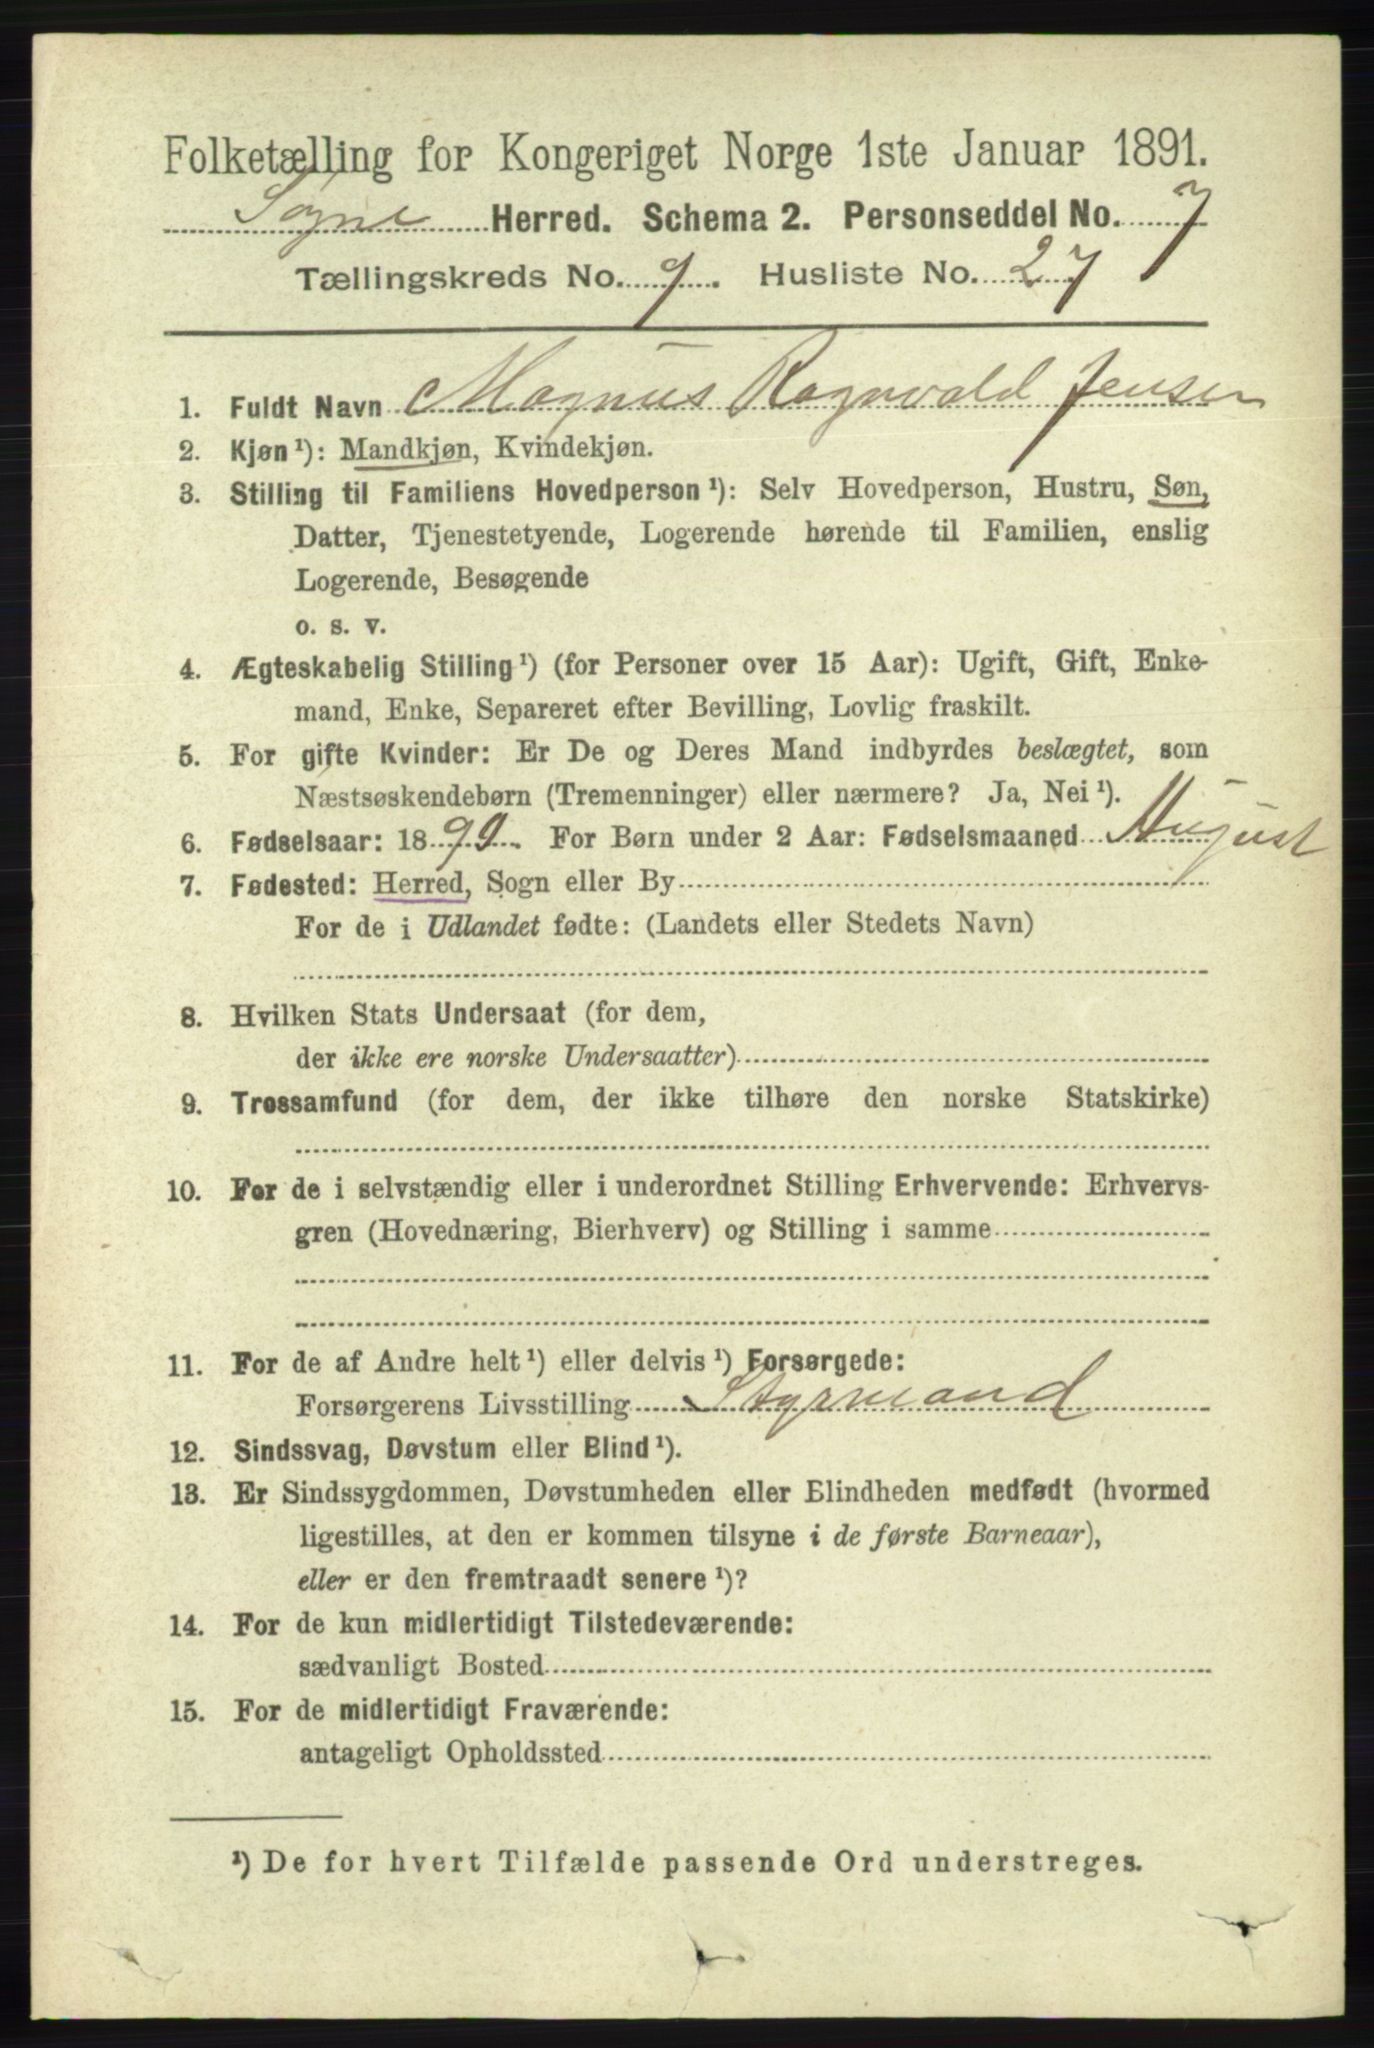 Folketælling for Kongeriget Norge 1ste Januar 1891.
Søgne Herred. Schema 2. Personseddel No. 7
Tællingskreds No. 9. Husliste No. 27
1. Fuldt Navn Magnus Ragnvald Jensen
2. Kjøn¹): Mandkjøn, Kvindekjøn.
3. Stilling til Familiens Hovedperson¹): Selv Hovedperson, Hustru, Søn,
Datter, Tjenestetyende, Logerende hørende til Familien, enslig
Logerende, Besøgende
o. s. v.
4. Ægteskabelig Stilling¹) (for Personer over 15 Aar): Ugift, Gift, Enke-
mand, Enke, Separeret efter Bevilling, Lovlig fraskilt.
5. For gifte Kvinder: Er De og Deres Mand indbyrdes beslægtet, som
Næstsøskendebørn (Tremenninger) eller nærmere? Ja, Nei¹).
6. Fødselsaar: 1890. For Børn under 2 Aar: Fødselsmaaned August
7. Fødested: Herred, Sogn eller By
For de i Udlandet fødte: (Landets eller Stedets Navn)
8. Hvilken Stats Undersaat (for dem,
der ikke ere norske Undersaatter)
9. Trossamfund (for dem, der ikke tilhøre den norske Statskirke)
10. For de i selvstændig eller i underordnet Stilling Erhvervende: Erhvervs-
gren (Hovednæring, Bierhverv) og Stilling i samme
11. For de af Andre helt¹) eller delvis¹) Forsørgede:
Forsørgerens Livsstilling Styrmand
12. Sindssvag, Døvstum eller Blind¹).
13. Er Sindssygdommen, Døvstumheden eller Blindheden medfødt (hvormed
ligestilles, at den er kommen tilsyne i de første Barneaar),
eller er den fremtraadt senere¹)?
14. For de kun midlertidigt Tilstedeværende:
sædvanligt Bosted
15. For de midlertidigt Fraværende:
antageligt Opholdssted
¹) De for hvert Tilfælde passende Ord understreges.